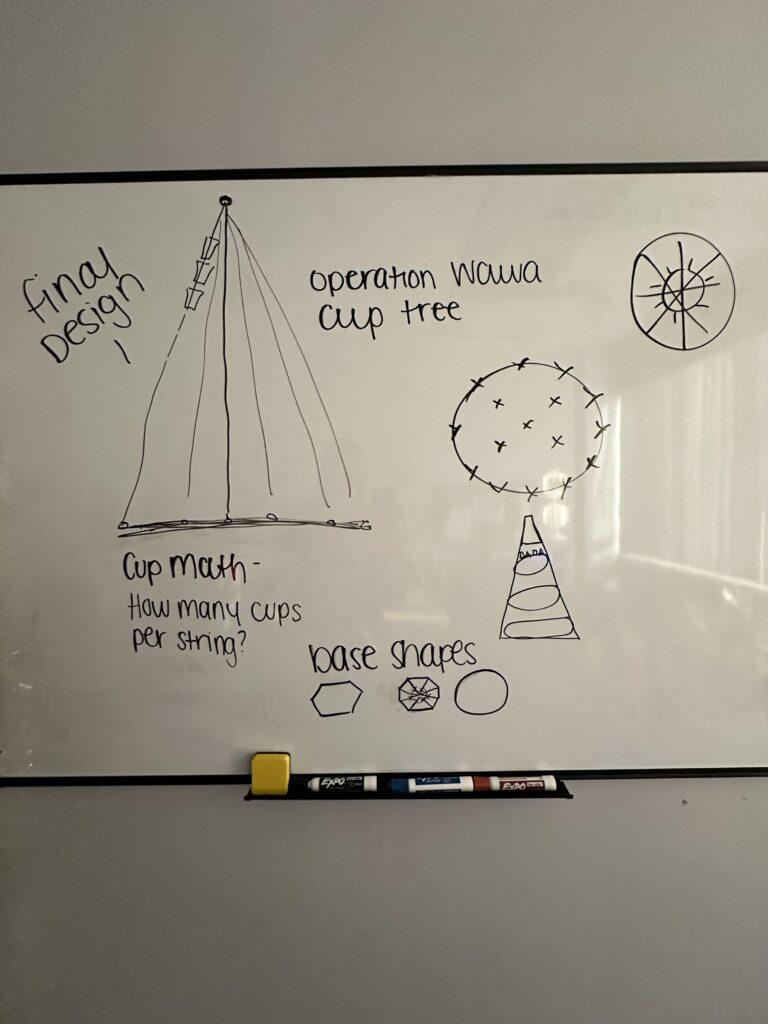 final
Design
1
operation wawa
cup tree
DADA
cup math-
How many cups
per string?
base shapes
EXPO
EXPO